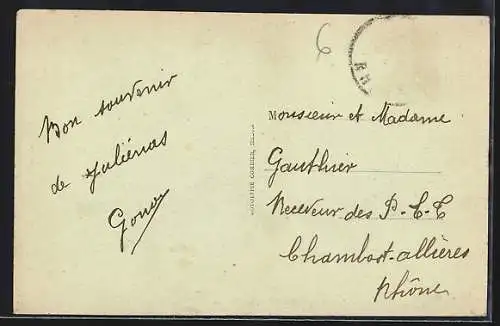 6
RH
Bon souvenir
de Juliénas
Monsieur et Madame
Gauthier
Receveur des P-E-E
Chambost-allières
Rhône